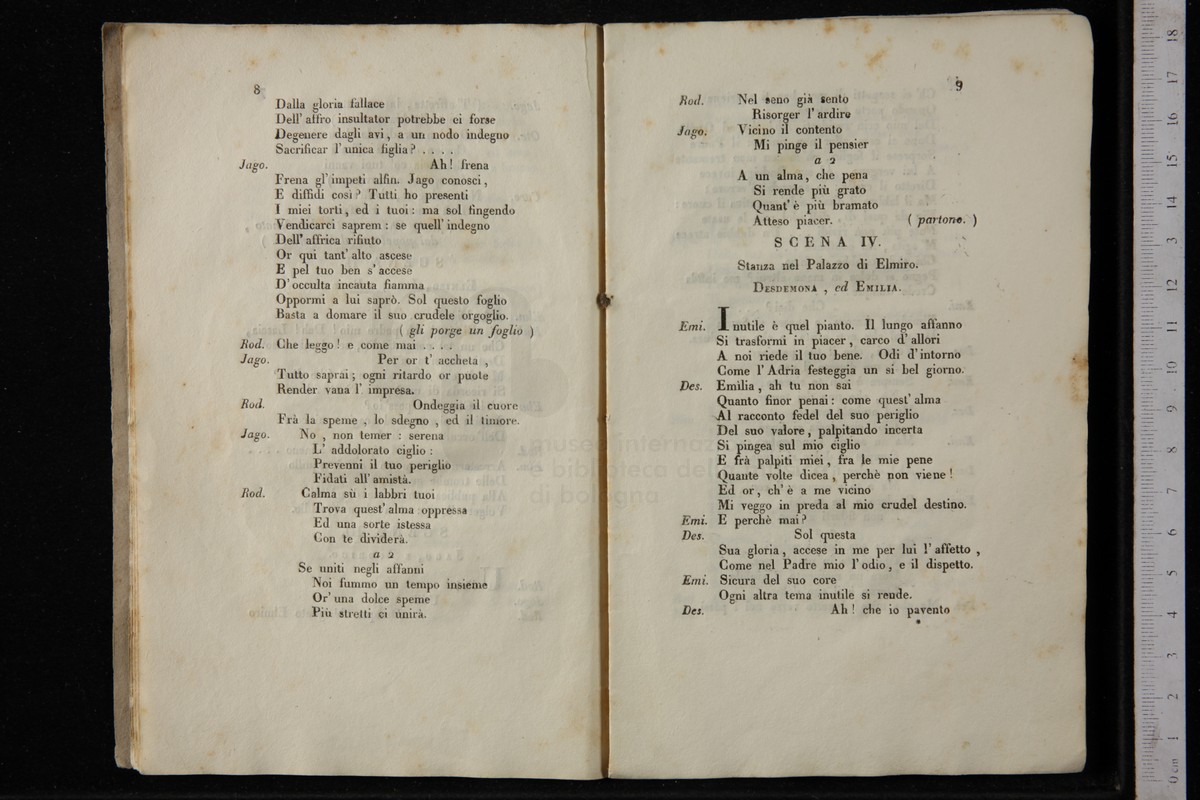 8
Dalla gloria fallace
Dell' affro insultator potrebbe ei forse
Degenere dagli avi, a un nodo indegno
Sacrificar l' unica figlia? . . . .
Jago. Ah! frena
Frena gl' impeti alfin. Jago conosci,
E diffidi così? Tutti ho presenti
I miei torti, ed i tuoi: ma sol fingendo
Vendicarci saprem: se quell' indegno
Dell' affrica rifiuto
Or qui tant' alto ascese
E pel tuo ben s' accese
D' occulta incauta fiamma
Oppormi a lui saprò. Sol questo foglio
Basta a domare il suo crudele orgoglio.
( gli porge un foglio )
Rod. Che leggo! e come mai . . . .
Jago. Per or t' accheta ,
Tutto saprai; ogni ritardo or puote
Render vana l' impresa.
Rod. Ondeggia il cuore
Frà la speme , lo sdegno , ed il timore.
Jago. No , non temer : serena
L' addolorato ciglio :
Prevenni il tuo periglio
Fidati all' amistà.
Rod. Calma sù i labbri tuoi
Trova quest' alma oppressa
Ed una sorte istessa
Con te dividerà.
a 2
Se uniti negli affanni
Noi fummo un tempo insieme
Or' una dolce speme
Più stretti ci unirà.
9
Rod. Nel seno già sento
Risorger l' ardire
Jago. Vicino il contento
Mi pinge il pensier
a 2
A un alma, che pena
Si rende più grato
Quant' è più bramato
Atteso piacer. ( partono. )
SCENA IV.
Stanza nel Palazzo di Elmiro.
DESDEMONA , ed EMILIA.
Emi. Inutile è quel pianto. Il lungo affanno
Si trasformi in piacer , carco d' allori
A noi riede il tuo bene. Odi d' intorno
Come l' Adria festeggia un si bel giorno.
Des. Emilia , ah tu non sai
Quanto finor penai: come quest' alma
Al racconto fedel del suo periglio
Del suo valore , palpitando incerta
Si pingea sul mio ciglio
E frà palpiti miei , fra le mie pene
Quante volte dicea , perchè non viene!
Ed or, ch' è a me vicino
Mi veggo in preda al mio crudel destino.
Emi. E perchè mai?
Des. Sol questa
Sua gloria, accese in me per lui l' affetto ,
Come nel Padre mio l' odio, e il dispetto.
Emi. Sicura del suo core
Ogni altra tema inutile si rende.
Des. Ah! che io pavento
*
museo internaz
e biblioteca del
di bologna